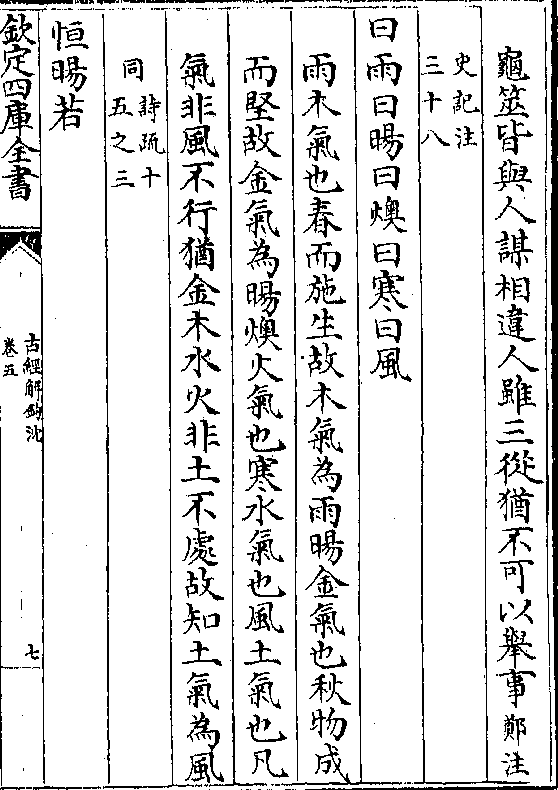 龜筮皆與人謀相違人雖三從猶不可以舉事鄭注
史記注
三十八
曰雨曰暘曰燠曰寒曰風
雨木氣也春而施生故木氣為雨暘金氣也秋物成
而堅故金氣為暘燠火氣也寒水氣也風土氣也凡
氣非風不行猶金木水火非土不處故知土氣為風
同
詩疏十
五之三
恒暘若
欽定四庫全書
古經解鉤沈
卷五
七